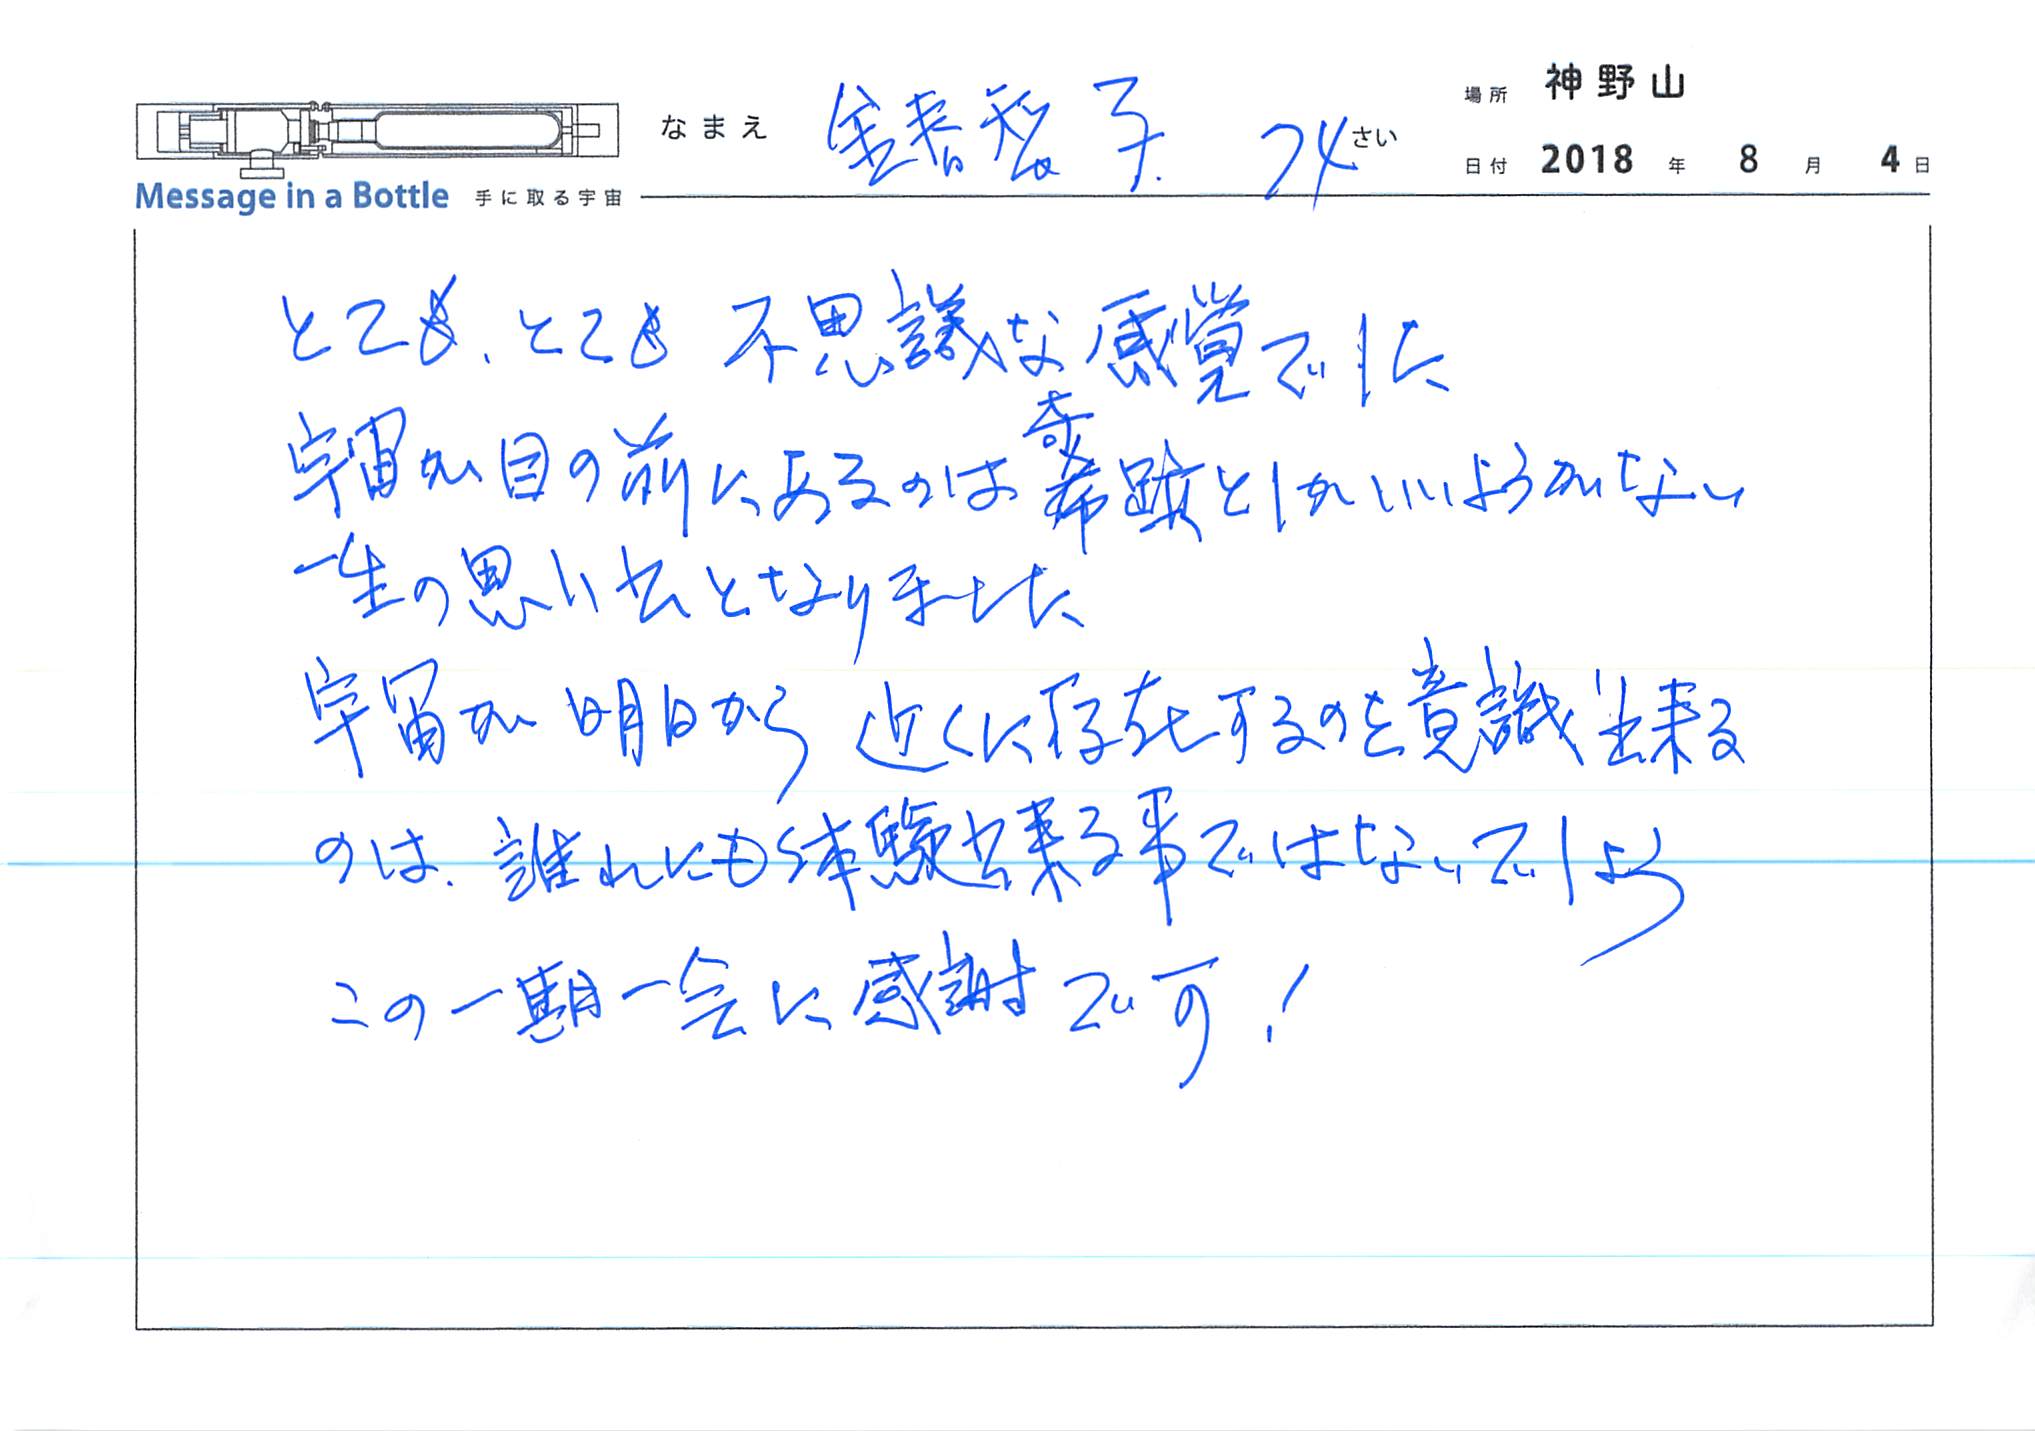 なまえ 金春 子 74さい
場所 神野山
日付 2018 年 8 月 4 日
Message in a Bottle 手に取る宇宙
とても、とても 不思議な感覚でした
奇
宇宙が目の前にあるのは希跡としかいいようがない
一生の思い出となりました
宇宙が明日から 近くに存在するのを意識出来る
のは、誰れにも体験出来る事ではないでしょう
この一期一会に感謝です!